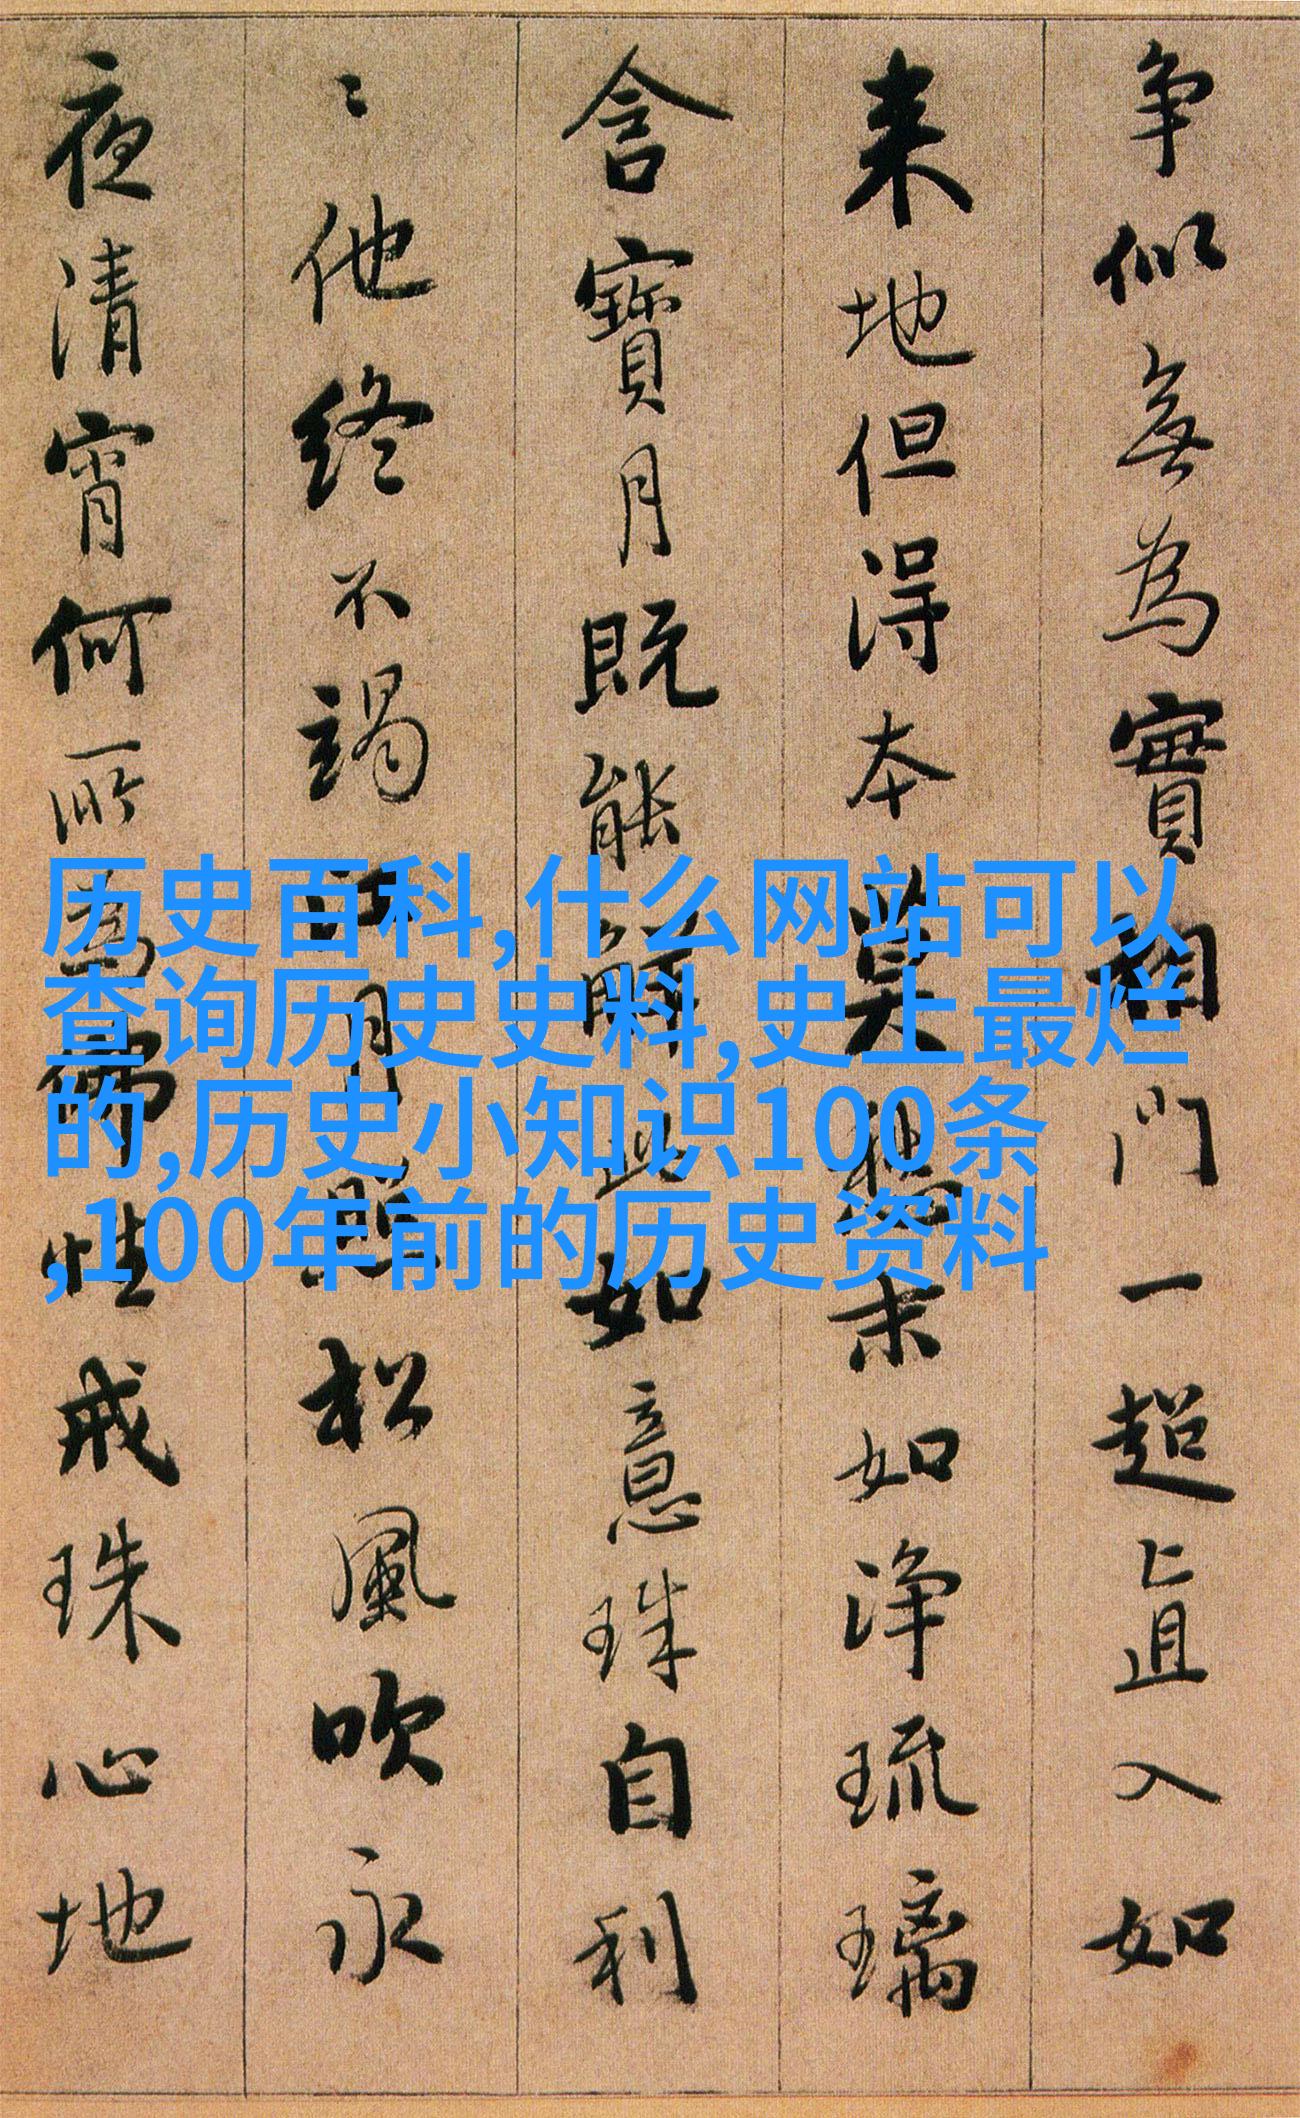 争似無為實相門一超直入如
来地但得本莫愁末如净琉璃
含寶月既能解此如意珠自利
〻他终不竭江月照松風吹永
夜清宵何所為佛性戒珠心地
历史百科,什么网站可以
查询历史史料,史上最烂
的,历史小知识100条
,100年前的历史资料